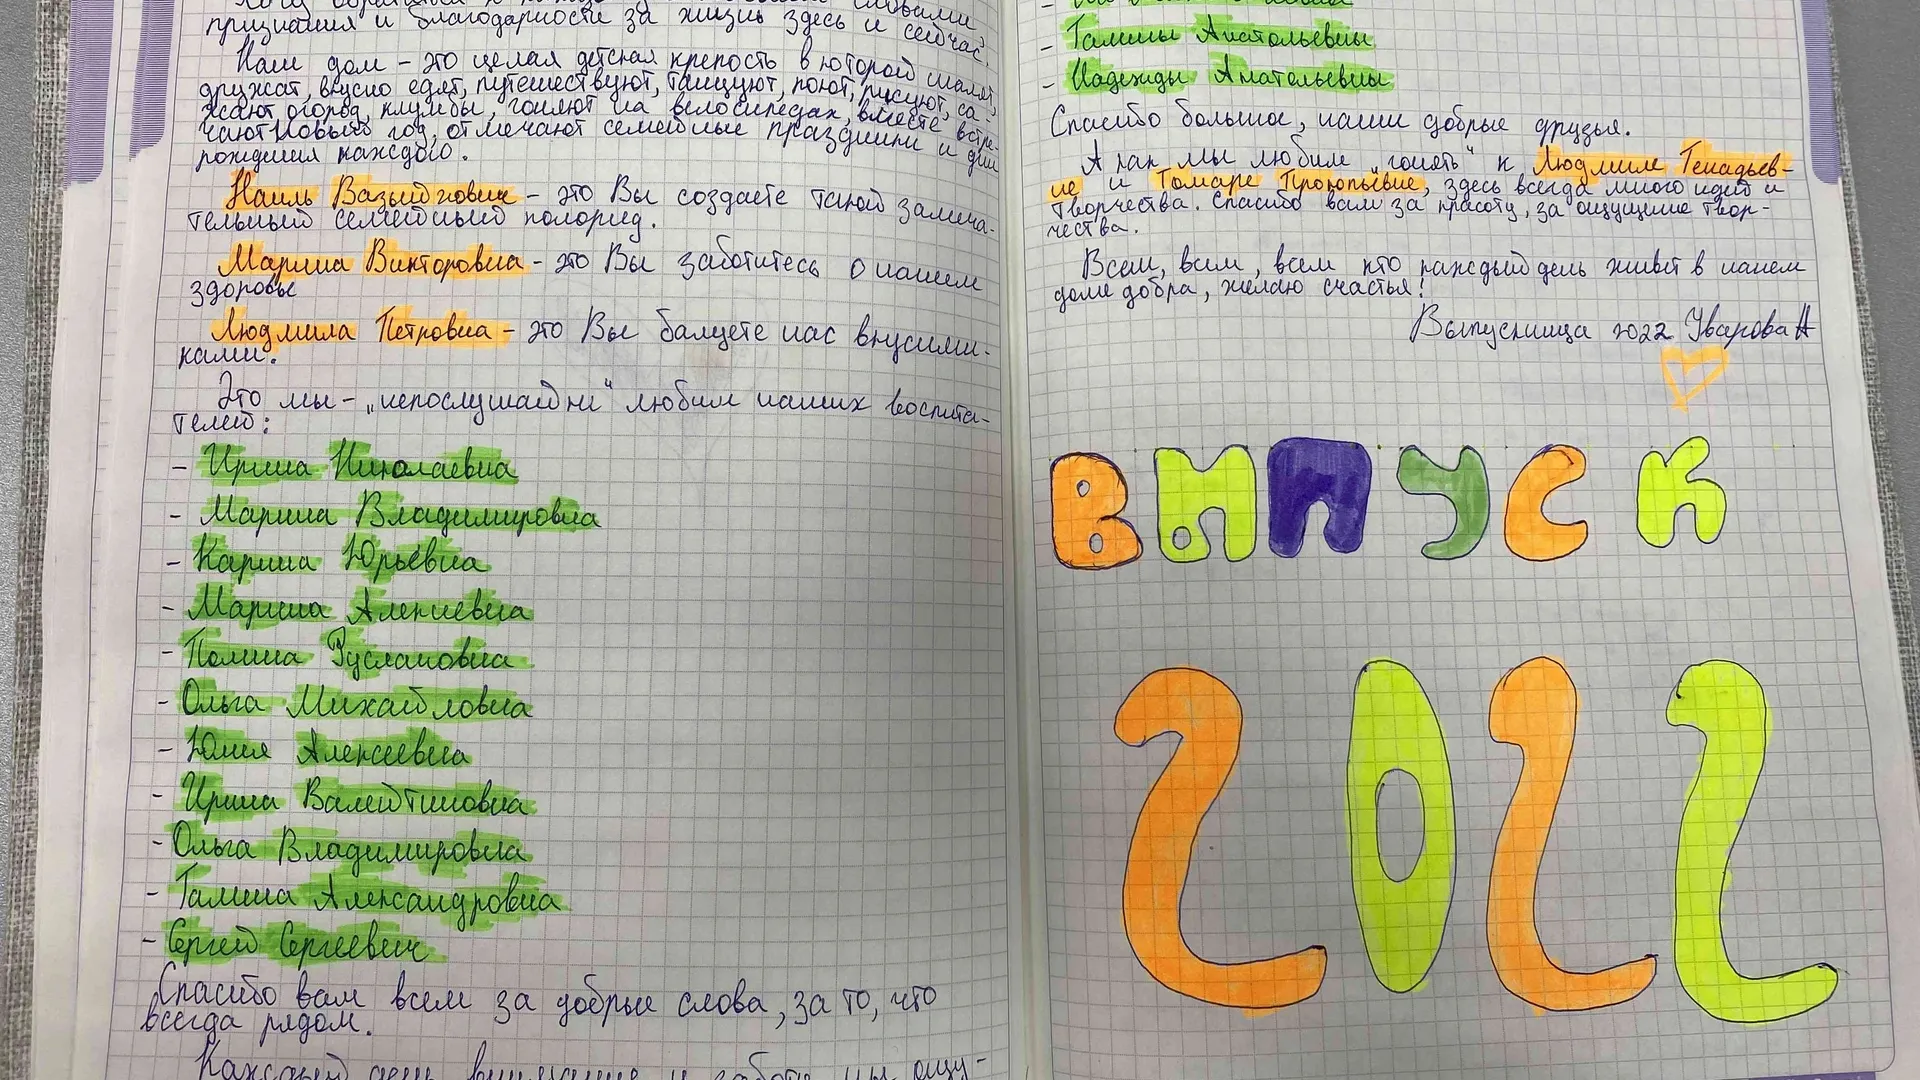 признания и благодарности за жизнь здесь и сейчас.
Наш дом – это целая детская крепость в которой шалят,
дружат, вкусно едят, путешествуют, танцуют, поют, рисуют, са-
жают огород, клумбы, гоняют на велосипедах, вместе встре-
чают Новый год, отмечают семейные праздники и дни
рождения каждого.
Наиль Вазыйгович – это Вы создаете такой замеча-
тельный семейный колорид.
Марина Викторовна – это Вы заботитесь о нашем
здоровье
Людмила Петровна – это Вы балуете нас вкусини-
ками.
Это мы – „непослушайдни“ любим наших воспита-
телей:
– Ирина Николаевна
– Марина Владимировна
– Карина Юрьевна
– Марина Алексевна
– Полина Руслановна
– Ольга Михайловна
– Юлия Алексеевна
– Ирина Валентиновна
– Ольга Владимировна
– Галина Александровна
– Сергей Сергеевич
Спасибо вам всем за добрые слова, за то, что
всегда рядом.
Каждый день внимание и заботу мы ощу-
– Галины Анатольевны
– Надежды Анатольевны
Спасибо большое, наши добрые друзья.
А как мы любим „гонять“ к Людмиле Генадьев-
не и Томаре Прокопьевне, здесь всегда много идей и
творчества. Спасибо вам за красоту, за ощущение твор-
чества.
Всем, всем, всем кто каждый день живет в нашем
доме добра, желаю счастья!
Выпускница 2022 Уварова А
ВЫПУСК
2022